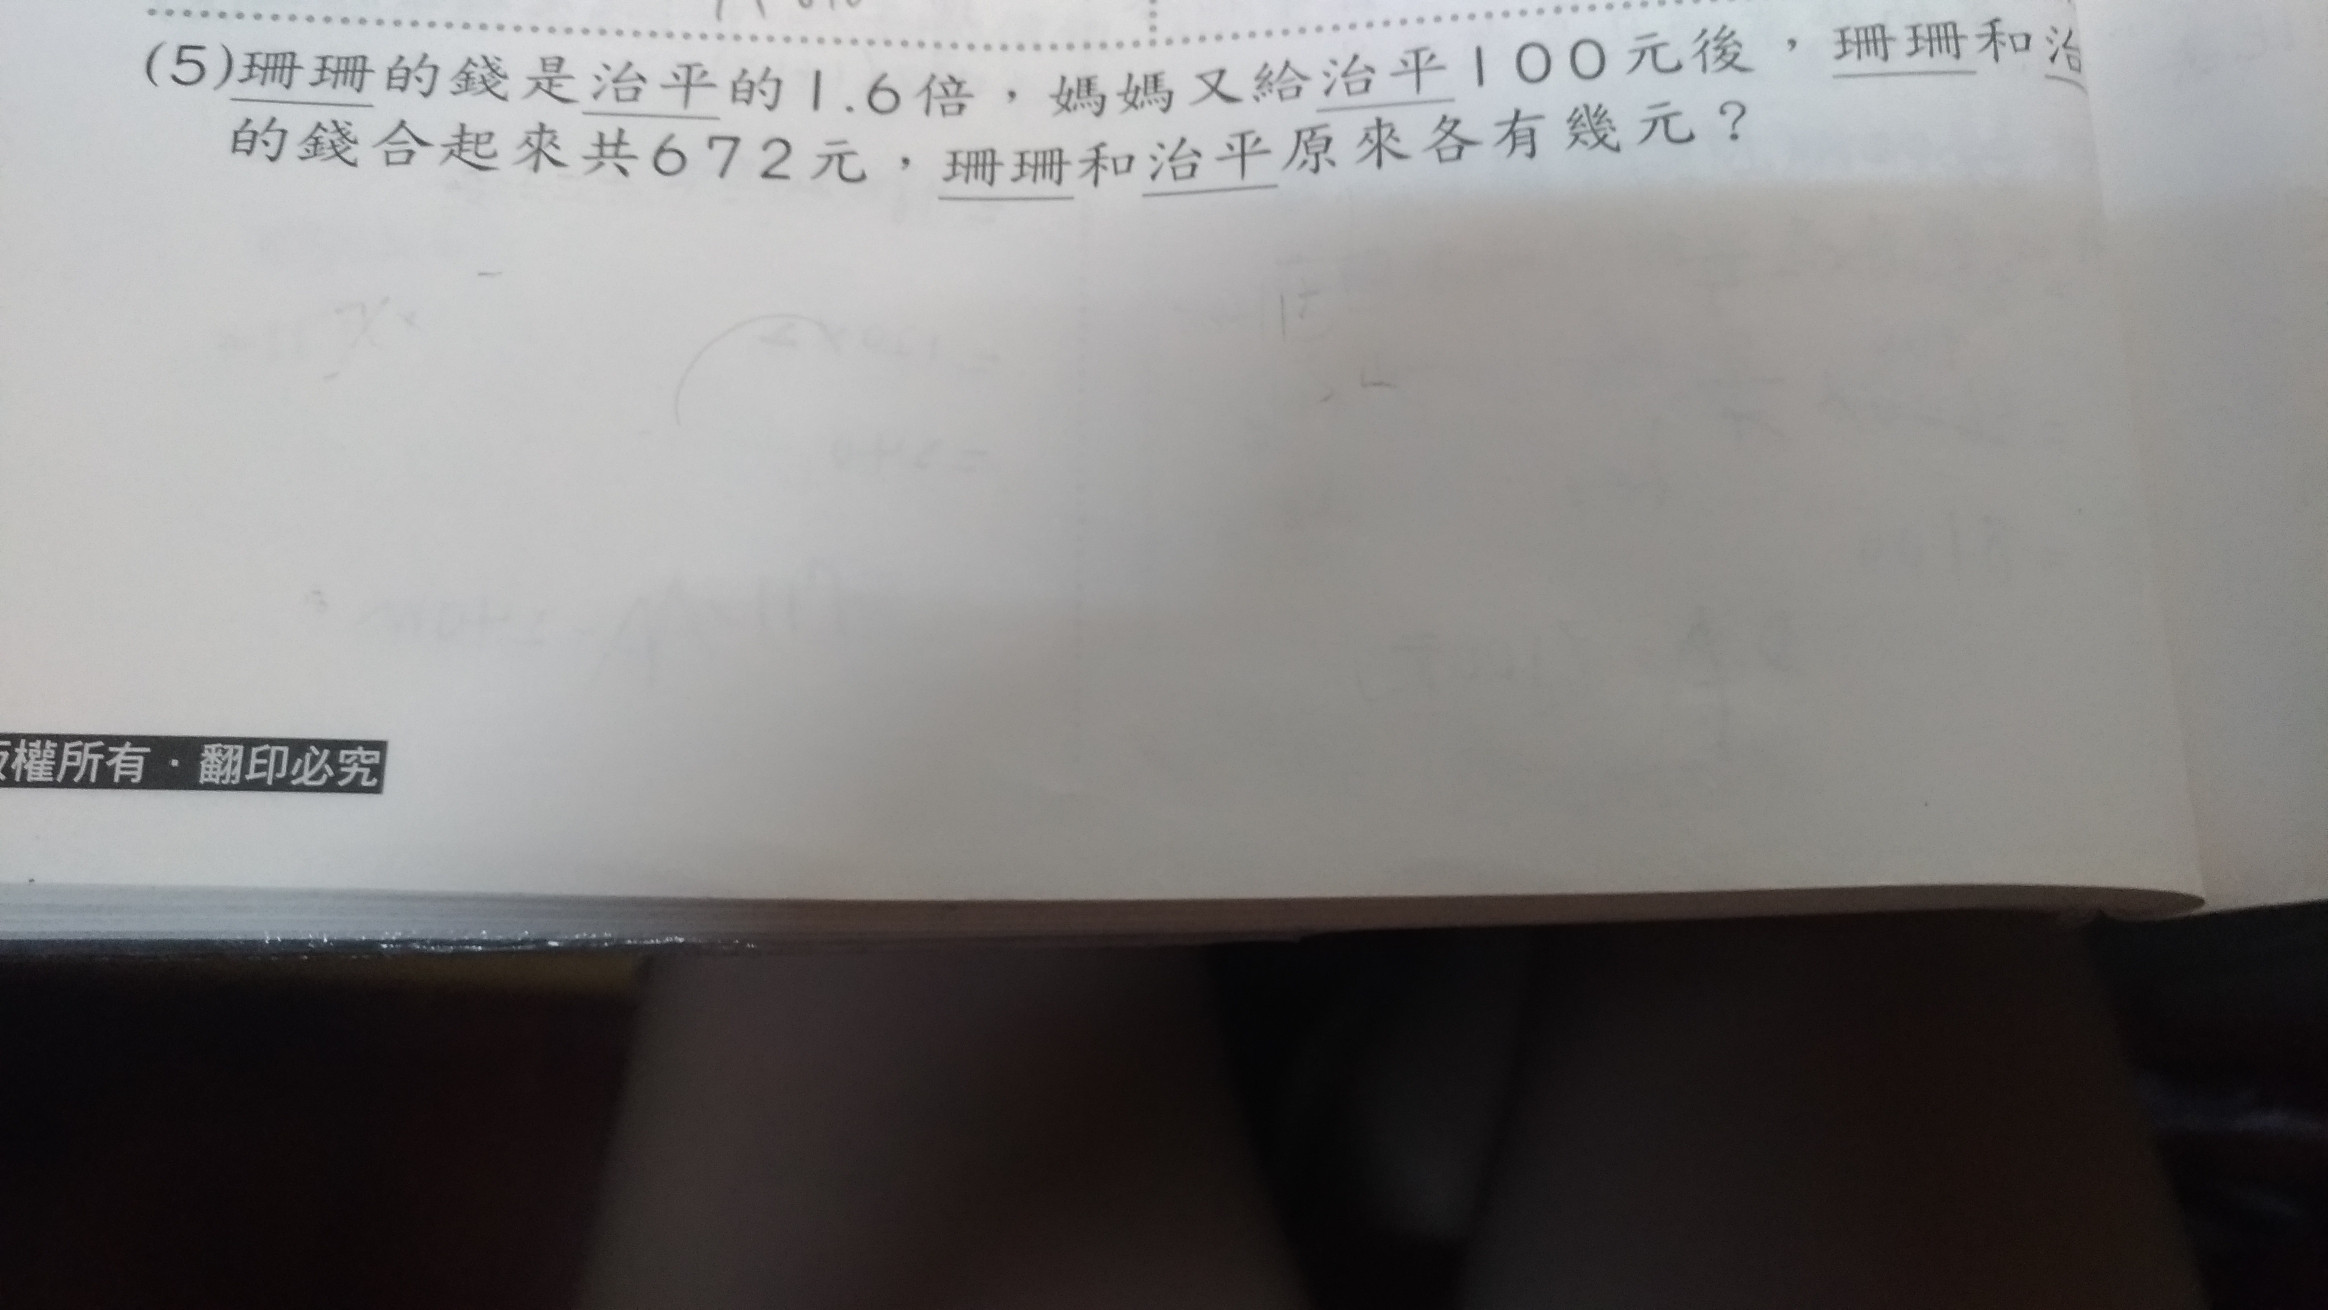 (5)珊珊的錢是治平的1.6倍，媽媽又給治平100元後，珊珊和治
的錢合起來共672元，珊珊和治平原來各有幾元？
版權所有．翻印必究